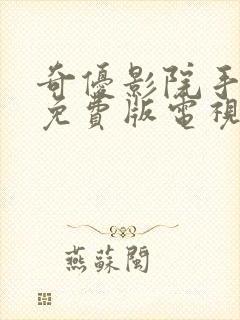 奇優影院手
免費版電視
燕蘇閩